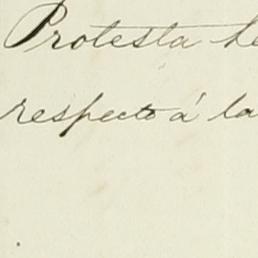 Protesta he
respecto á la